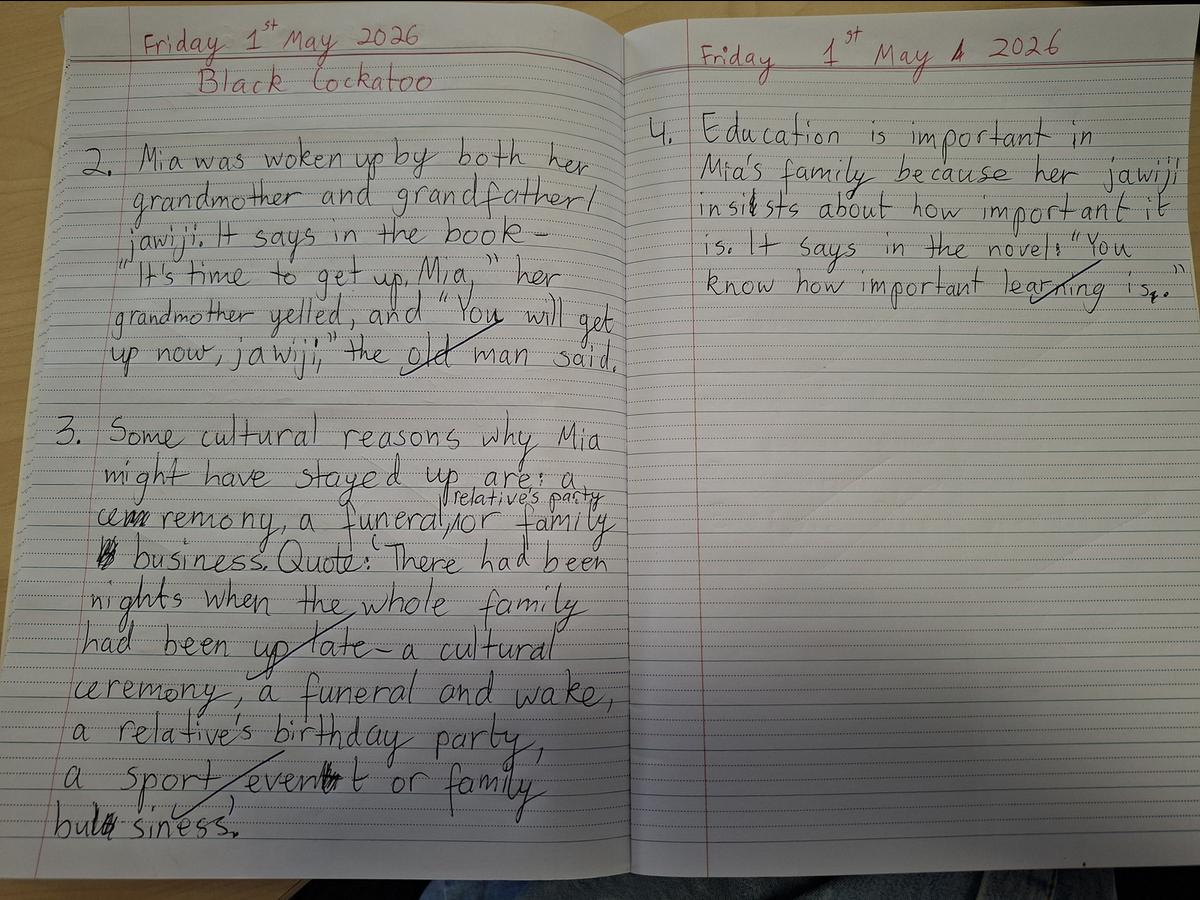 Friday 1st May 2026
Black Cockatoo
2. Mia was woken up by both her
grandmother and grandfather/
jawiji. It says in the book -
"It's time to get up, Mia," her
grandmother yelled, and "You will get
up now, jawiji," the old man said.
3. Some cultural reasons why Mia
might have stayed up are: a
ceremony, a funeral, relative's party
or family
business. Quote: 'There had been
nights when the whole family
had been up late - a cultural
ceremony, a funeral and wake,
a relative's birthday party,
a sport event or family
business'.
Friday 1st May 2026
4. Education is important in
Mia's family because her jawiji
insists about how important it
is. It says in the novel: "You
know how important learning is."